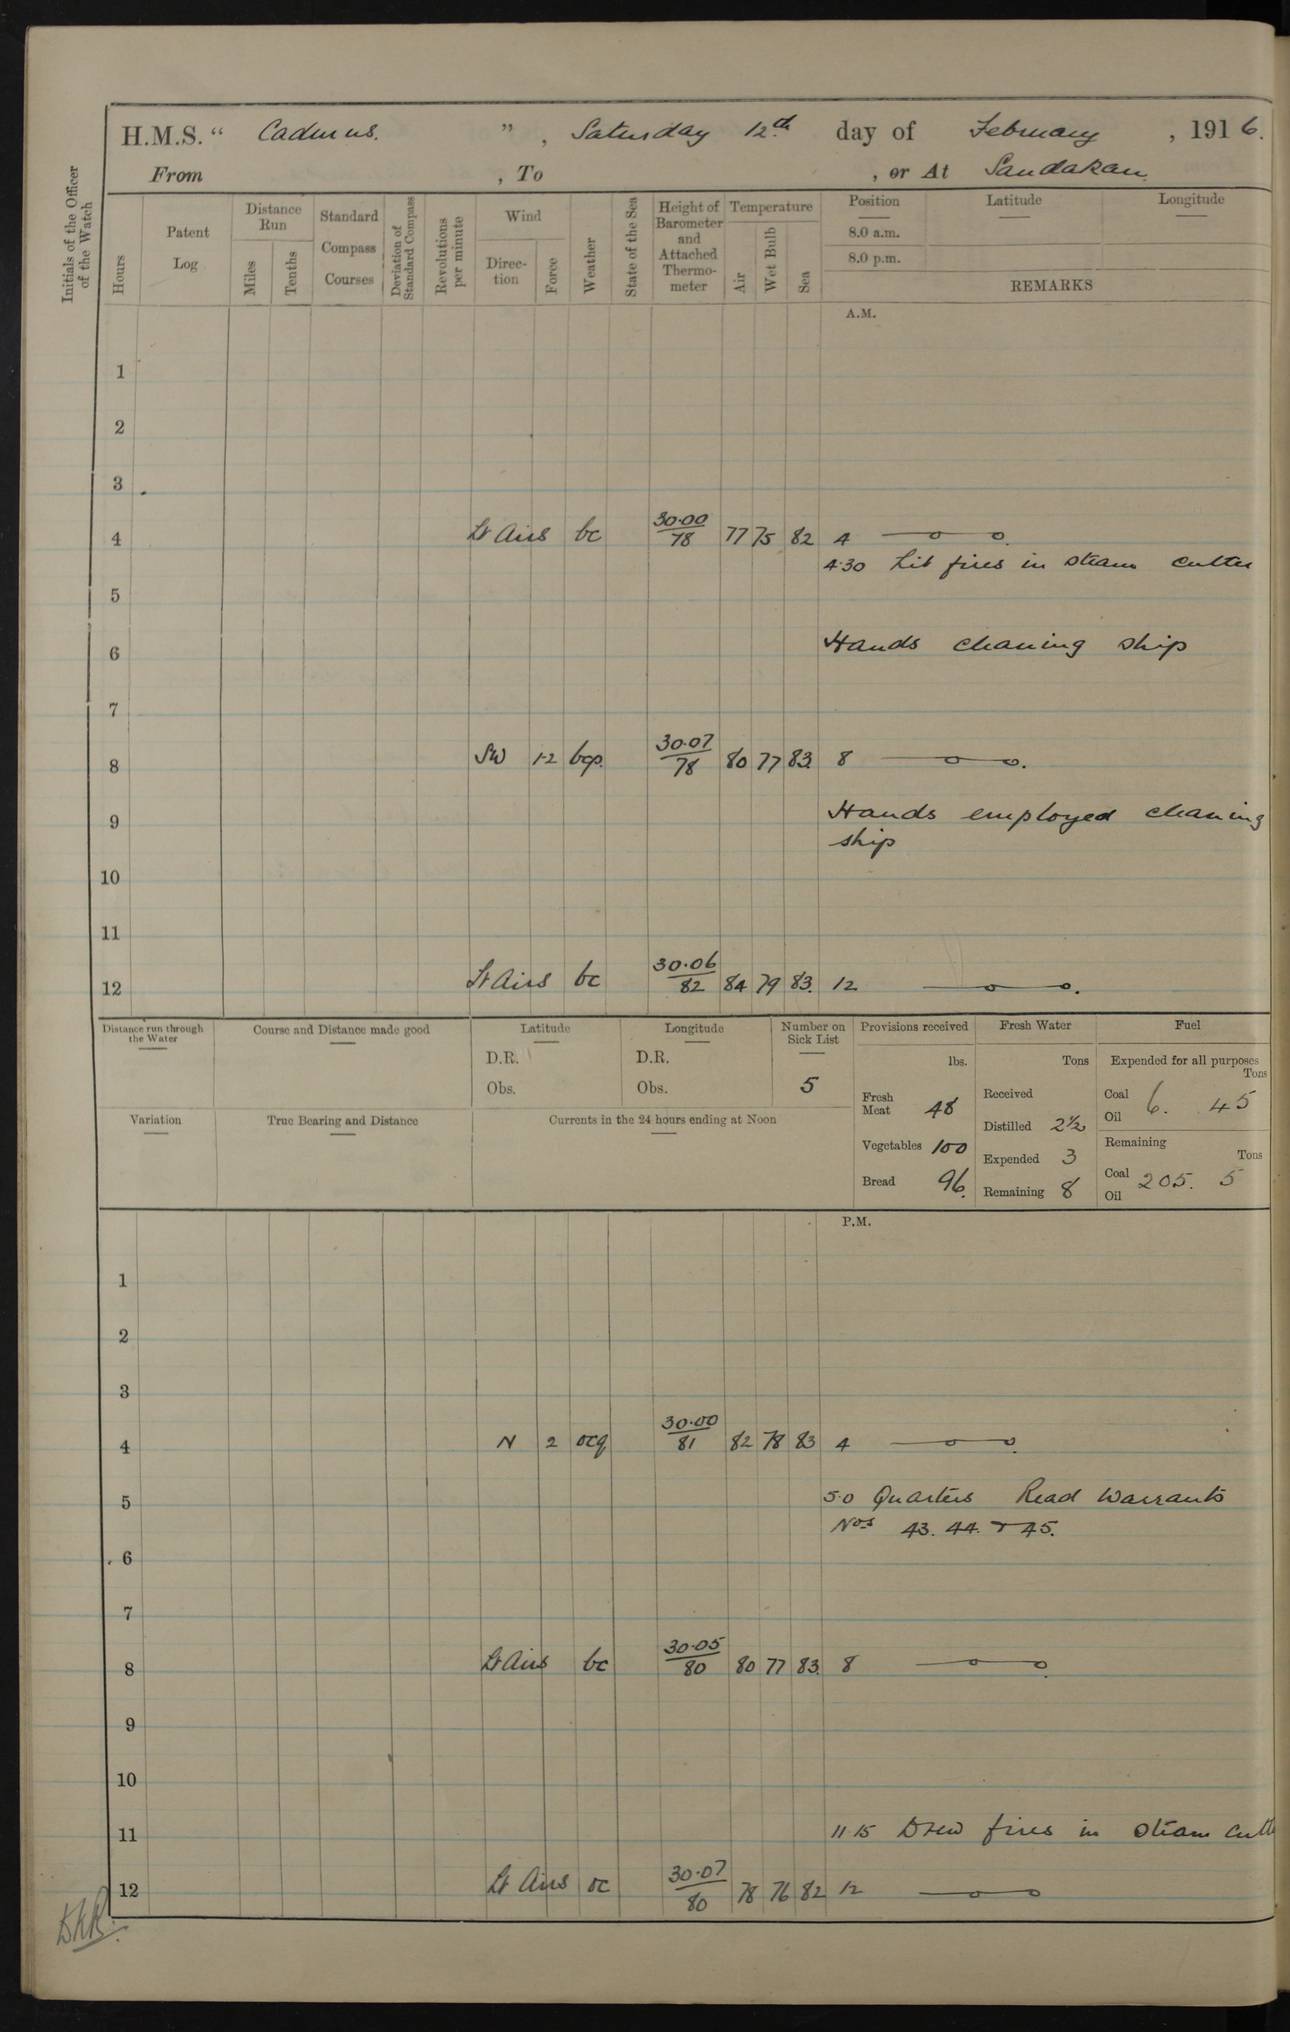 H.M.S. “ Cadmus. ”, Saturday 12th day of February, 1916.
From , To , or At Sandakan
Initials of the Officer of the Watch
Hours
Patent Log
Distance Run
Miles
Tenths
Standard Compass Courses
Deviation of Standard Compass
Revolutions per minute
Wind
Direction
Force
Weather
State of the Sea
Height of Barometer and Attached Thermometer
Temperature
Air
Wet Bulb
Sea
Position
8.0 a.m.
8.0 p.m.
Latitude
Longitude
REMARKS
A.M.
1
2
3
4 Lt Airs bc 30.00/78 77 75 82 4
4.30 Lit fires in steam cutter
5
6 Hands cleaning ship
7
8 SW 1-2 bcp. 30.07/78 80 77 83. 8
9 Hands employed cleaning
ship
10
11
12 Lt Airs bc 30.06/82 84 79 83. 12
Distance run through the Water
Course and Distance made good
Latitude
D.R.
Obs.
Longitude
D.R.
Obs.
Number on Sick List
5
Variation
True Bearing and Distance
Currents in the 24 hours ending at Noon
Provisions received
lbs.
Fresh Meat 48
Vegetables 100
Bread 96.
Fresh Water
Tons
Received
Distilled 2½
Expended 3
Remaining 8
Fuel
Expended for all purposes
Tons
Coal 6. 45
Oil
Remaining
Tons
Coal 205. 5
Oil
P.M.
1
2
3
4 N 2 ocq 30.00/81 82 78 83 4
5 5.0 Quarters Read Warrants
Nos 43. 44. & 45.
6
7
8 Lt Airs bc 30.05/80 80 77 83. 8
9
10
11 11.15 Drew fires in steam cutt
12 Lt Airs oc 30.07/80 78 76 82 12